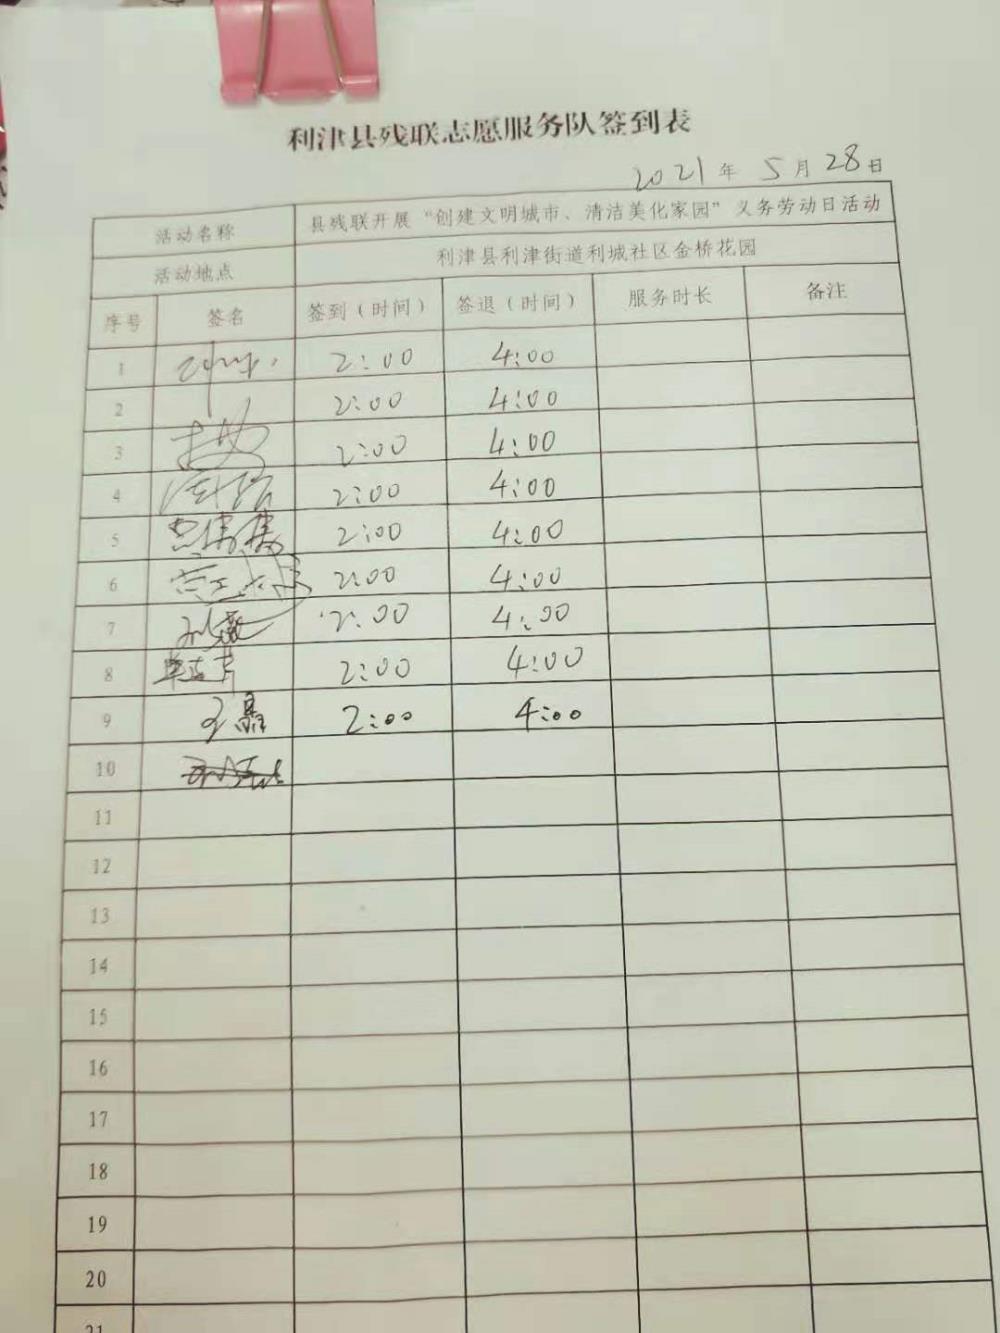 利津县残联志愿服务队签到表
2021年 5月 28日
活动名称 县残联开展“创建文明城市、清洁美化家园”义务劳动日活动
活动地点 利津县利津街道利城社区金桥花园
序号 签名 签到（时间） 签退（时间） 服务时长 备注
1 2:00 4:00
2 2:00 4:00
3 2:00 4:00
4 2:00 4:00
5 2:00 4:00
6 2:00 4:00
7 2:00 4:00
8 2:00 4:00
9 2:00 4:00
10
11
12
13
14
15
16
17
18
19
20
21